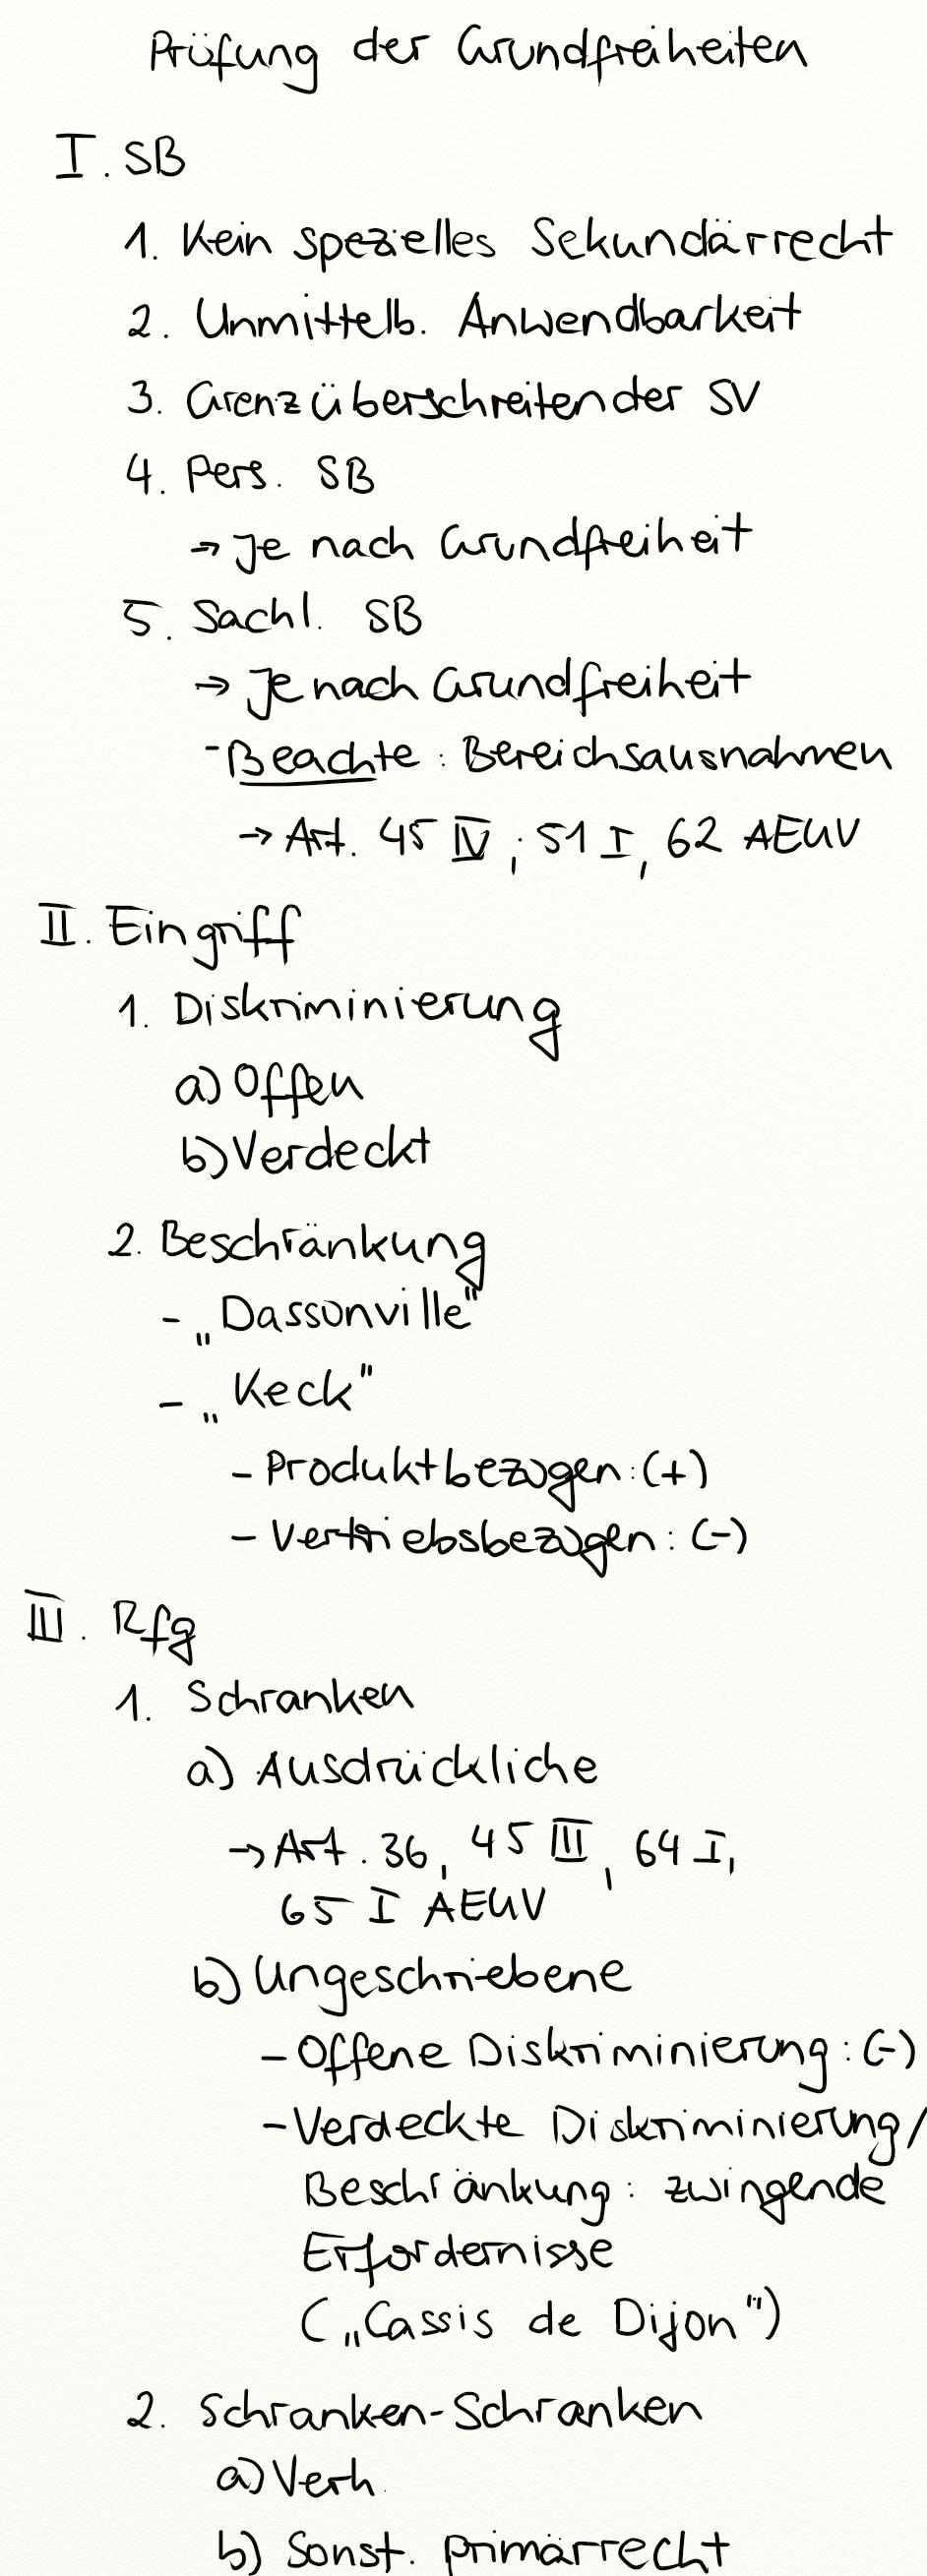 Prüfung der Grundfreiheiten
I. SB
1. Kein spezielles Sekundärrecht
2. Unmittelb. Anwendbarkeit
3. Grenzüberschreitender SV
4. Pers. SB
→ Je nach Grundfreiheit
5. Sachl. SB
→ Je nach Grundfreiheit
- Beachte: Bereichsausnahmen
→ Art. 45 IV, 51 I, 62 AEUV
II. Eingriff
1. Diskriminierung
a) Offen
b) Verdeckt
2. Beschränkung
- „Dassonville"
- „Keck"
- Produktbezogen: (+)
- Vertriebsbezogen: (-)
III. Rfg
1. Schranken
a) Ausdrückliche
→ Art. 36, 45 III, 64 I,
65 I AEUV
b) Ungeschriebene
- Offene Diskriminierung: (-)
- Verdeckte Diskriminierung/
Beschränkung: zwingende
Erfordernisse
(„Cassis de Dijon")
2. Schranken-Schranken
a) Verh.
b) Sonst. Primärrecht